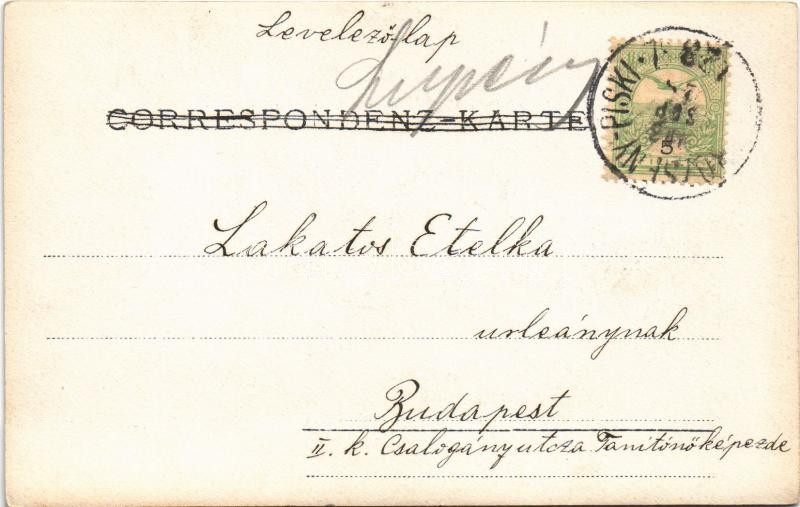 Levelező-lap
CORRESPONDENZ-KARTE
5
Lakatos Etelka
urleánynak
Budapest
II. k. Csalogány utcza Tanítónőképezde